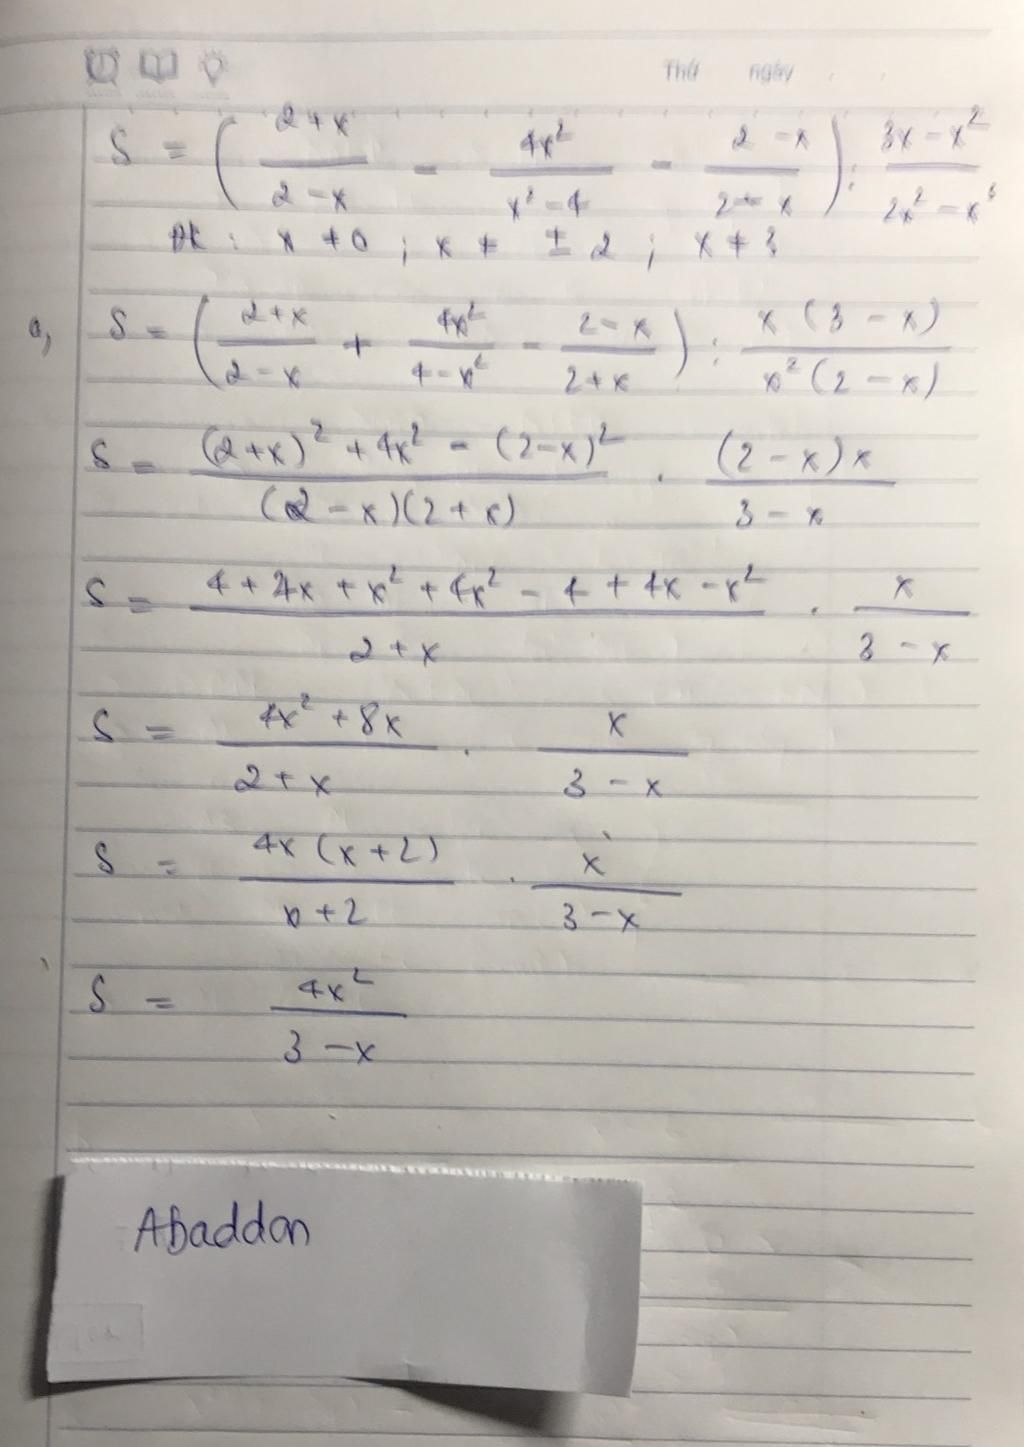 Thứ ngày
S = ( (2+x)/(2-x) - 4x²/(x²-4) - (2-x)/(2+x) ) : (3x-x²)/(2x²-x³)
ĐK : x ≠ 0 ; x ≠ ± 2 ; x ≠ 3
a, S = ( (2+x)/(2-x) + 4x²/(4-x²) - (2-x)/(2+x) ) : x(3-x)/x²(2-x)
S = ((2+x)² + 4x² - (2-x)²)/((2-x)(2+x)) . (2-x)x/(3-x)
S = (4 + 4x + x² + 4x² - 4 + 4x - x²)/(2+x) . x/(3-x)
S = (4x² + 8x)/(2+x) . x/(3-x)
S = 4x(x+2)/(x+2) . x/(3-x)
S = 4x²/(3-x)
Abaddon